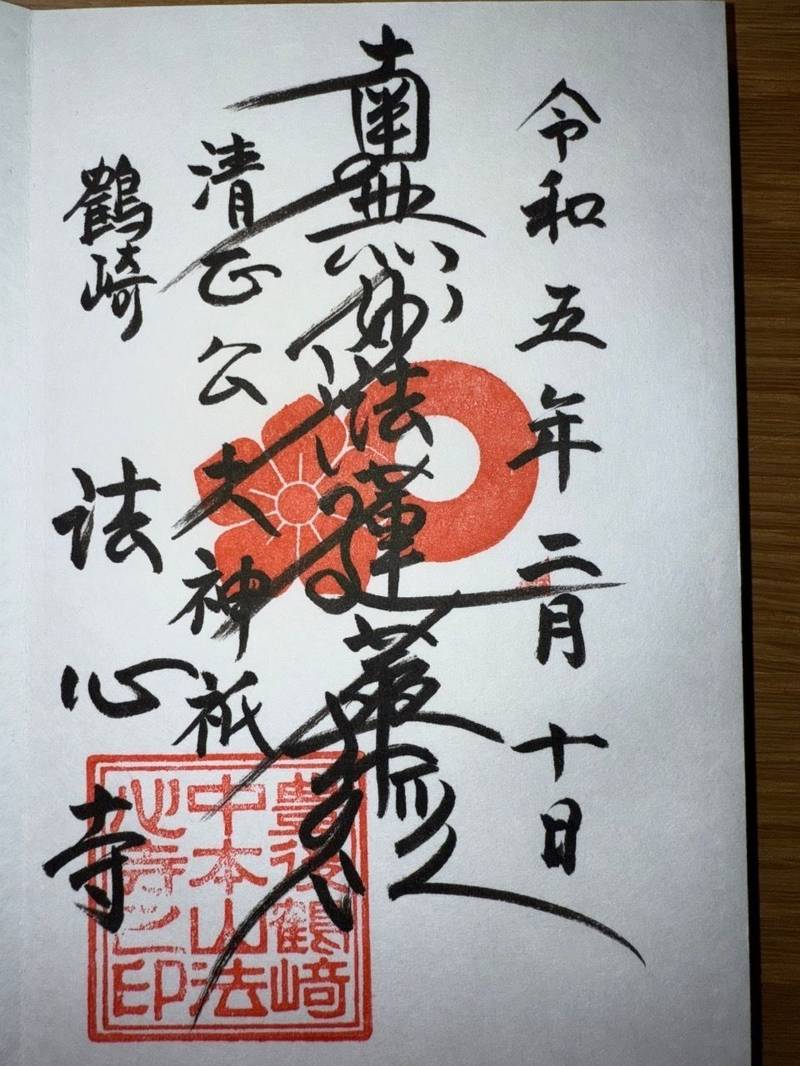 令和五年二月十日
南無妙法蓮華経
清正公大神祇
鶴崎 法心寺
豊後鶴崎
中本山法
心寺之印